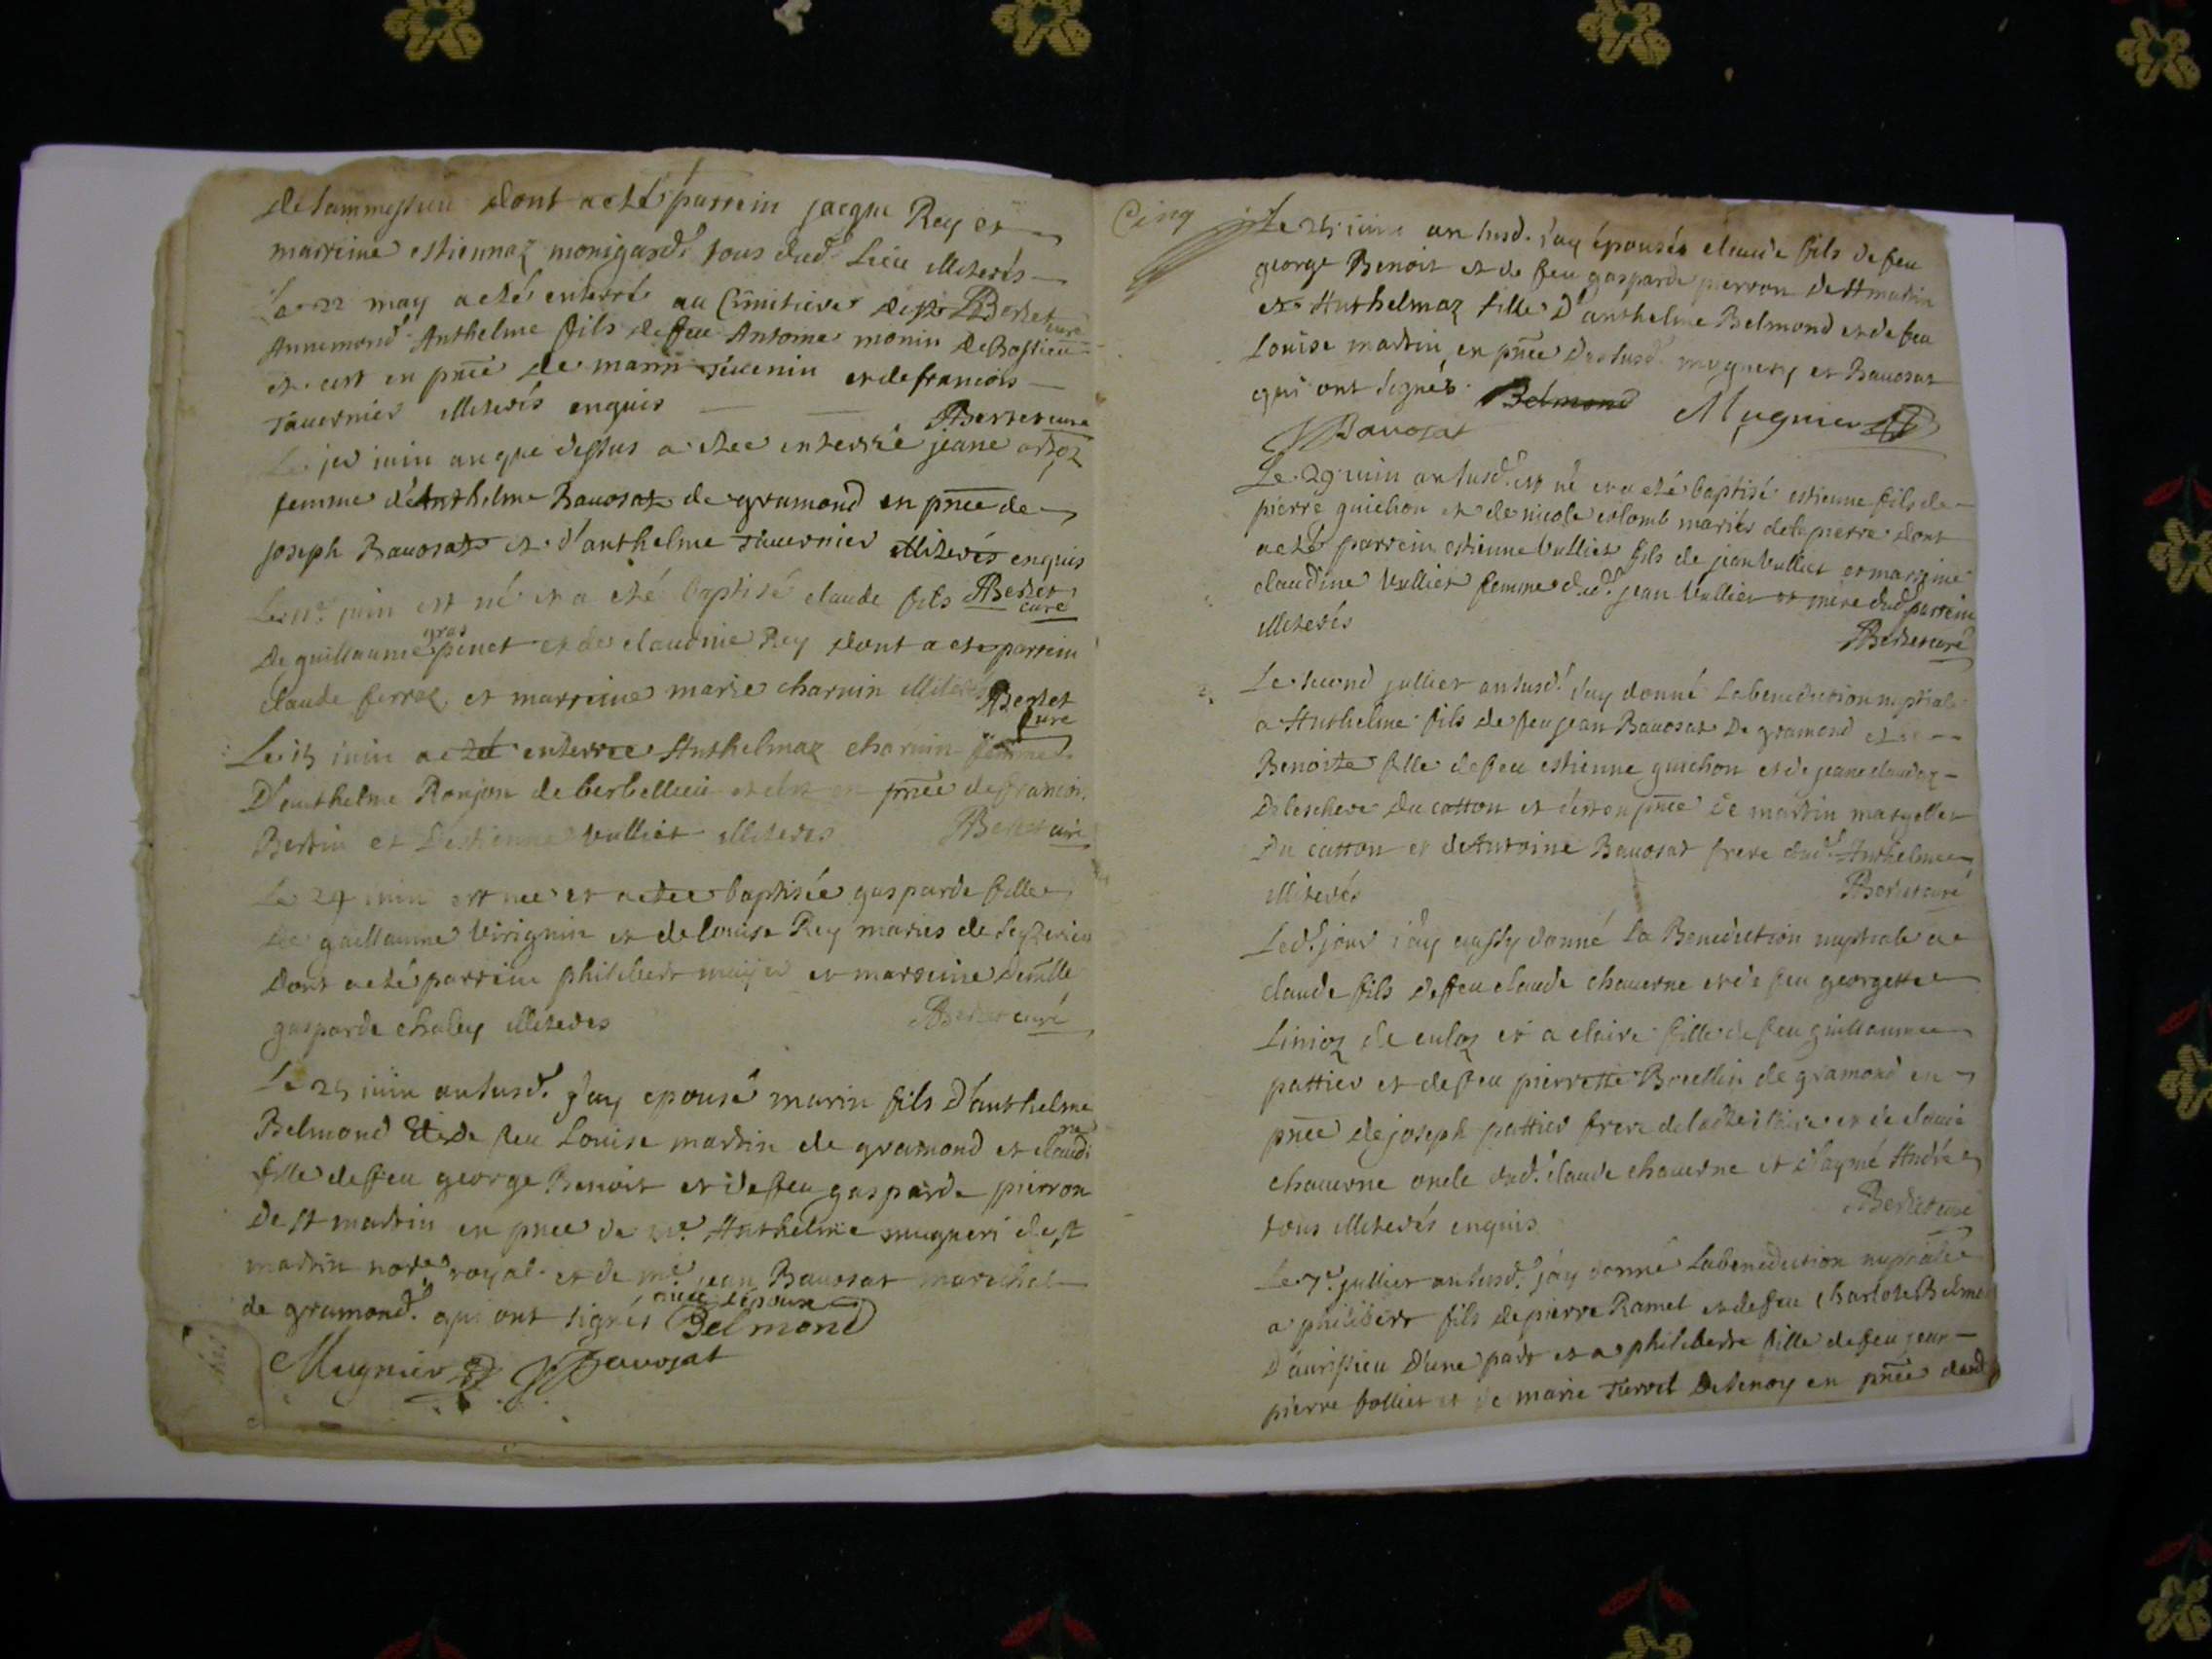 dont a eté parrein jacque Rey et
marreine estiennaz monigard. tous dud. Lieu illiterés
Le 22 may a eté enterré au Cimitiere Berlet curé
Annemond Anthelme fils de feu Antoine monin de Bossieu
et cest en pnce de marin et de francois
Tavernier illiterés enquis Berlet curé
Le jer iuin an que dessus a etee enterrée jeane
femme d'Anthelme Bavosat de gramond en pnce de
joseph Bavosat et d'anthelme Tavernier illiterés enquis
Le 11e juin est né et a eté baptisé claude fils Berlet curé
De guillaume gros penet et de claudine Rey dont a eté parrein
claude ferraz et marreine marie charvin Berlet curé
Le 15 iuin a eté enterree Anthelmaz charvin femme
D'anthelme Ronjon de berbellieu en pnce de francois
Bertin et D'estienne vulliet illiteres Berlet curé
Le 24 iuin est nee et a etee baptisée gasparde fille
de guillaume Virignin et de Louise Rey mariés de
Dont a eté parrein philibert et marreine Demlle
gasparde chaley illiteres Berlet curé
Le 25 iuin an susd. J'ay epousé marin fils D'anthelme
Belmond Et de feu Louise martin de gramond et claudine
fille de feu george Benoit et de feu gasparde pierron
De St martin en pnce de Me Anthelme mugneri de St
martin notre royal et de me jean Bavosat marechal
de gramond. qui ont signés avec l'époux Belmond
Mugnier JBavosat
Cinq
Le 25 iuin an susd. J'ay épousés claude fils de feu
george Benoit et de feu gasparde pierron de St martin
et Anthelmaz fille D'anthelme Belmond et de feu
Louise martin en pnce des susd. mugnery et Bavosat
qui ont signés. Belmond Mugnier
JBavosat
Le 29 iuin an susd. est né et a eté baptisé estienne fils de
pierre guichon et de nicole colomb mariés de la pierre dont
a eté parrein estienne Vulliet fils de jean Vulliet et marreine
claudine Vulliet femme dud. jean Vulliet et mere dud. parrein
illiterés Berlet curé
Le second jullier an susd. J'ay donné La benediction nuptiale
a Anthelme fils de feu jean Bavosat De gramond et a
Benoite fille de feu estienne guichon et de jeane claudaz
De leschere du cotton et c'est en pnce de martin
Du cotton et de Antoine Bavosat frere dud. Anthelme
illiterés Berlet curé
Led. jour j'ay aussy donné La Benediction nuptiale a
claude fils de feu claude chaverne et de feu georgette
Linioz de culoz et a claire fille de feu guillaume
pattier et de feu pierrette Breellin de gramond en
pnce de joseph pattier frere de et de claude
chaverne oncle dud. claude chaverne et d'aymé André
tous illiterés enquis Berlet curé
Le 7e jullier an susd. j'ay donné La benediction nuptiale
a philibert fils de pierre Ramel et de feu charlote Belme
D'aurissieu D'une part et a philiberte fille de feu jean
pierre follier et de marie en pnce dud